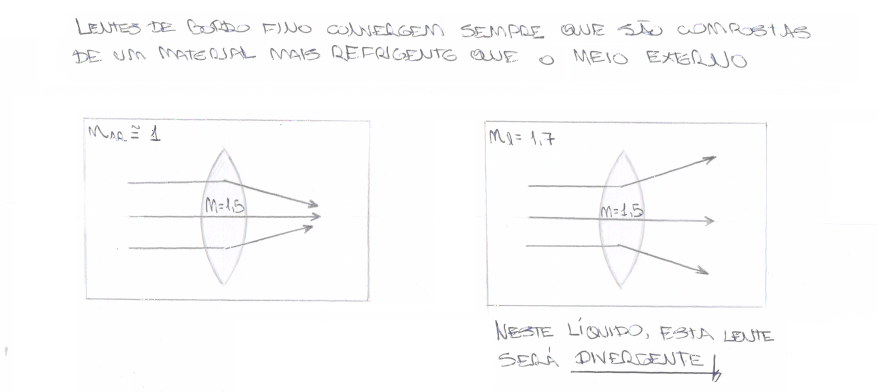 LENTES DE BORDO FINO CONVERGEM SEMPRE QUE SÃO COMPOSTAS
DE UM MATERIAL MAIS REFRIGENTE QUE O MEIO EXTERNO
nAR ≅ 1
nl = 1,7
n=1,5
n=1,5
NESTE LÍQUIDO, ESTA LENTE
SERÁ DIVERGENTE